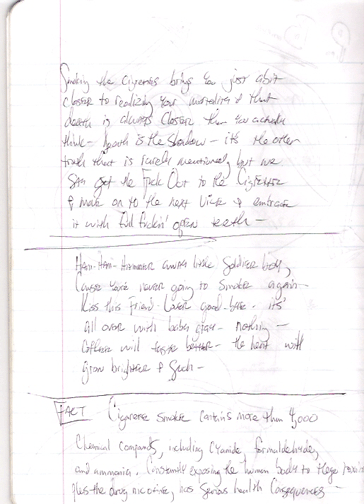 Smoking the Cigarettes brings you just abit
closer to realizing your mortality & that
death is always closer than you actually
think - Death is the Shadow - it's the other
truth that is rarely mentioned, but we
get the Fuck Out to the Cigarette
& move on to the next & embrace
it with full fuckin' open teeth -
little Soldier boy,
Cause you're never going to smoke again -
Kiss this Friend - Lover good-bye - it's
all over with baby face - nothing -
Coffee will taste better - the heart will
grow brighter & Such -
FACT Cigarette Smoke contains more than 4,000
Chemical compounds, including Cyanide, formaldehyde,
and ammonia. Constantly exposing the human body to these
plus the drug nicotine, has serious health Consequences -